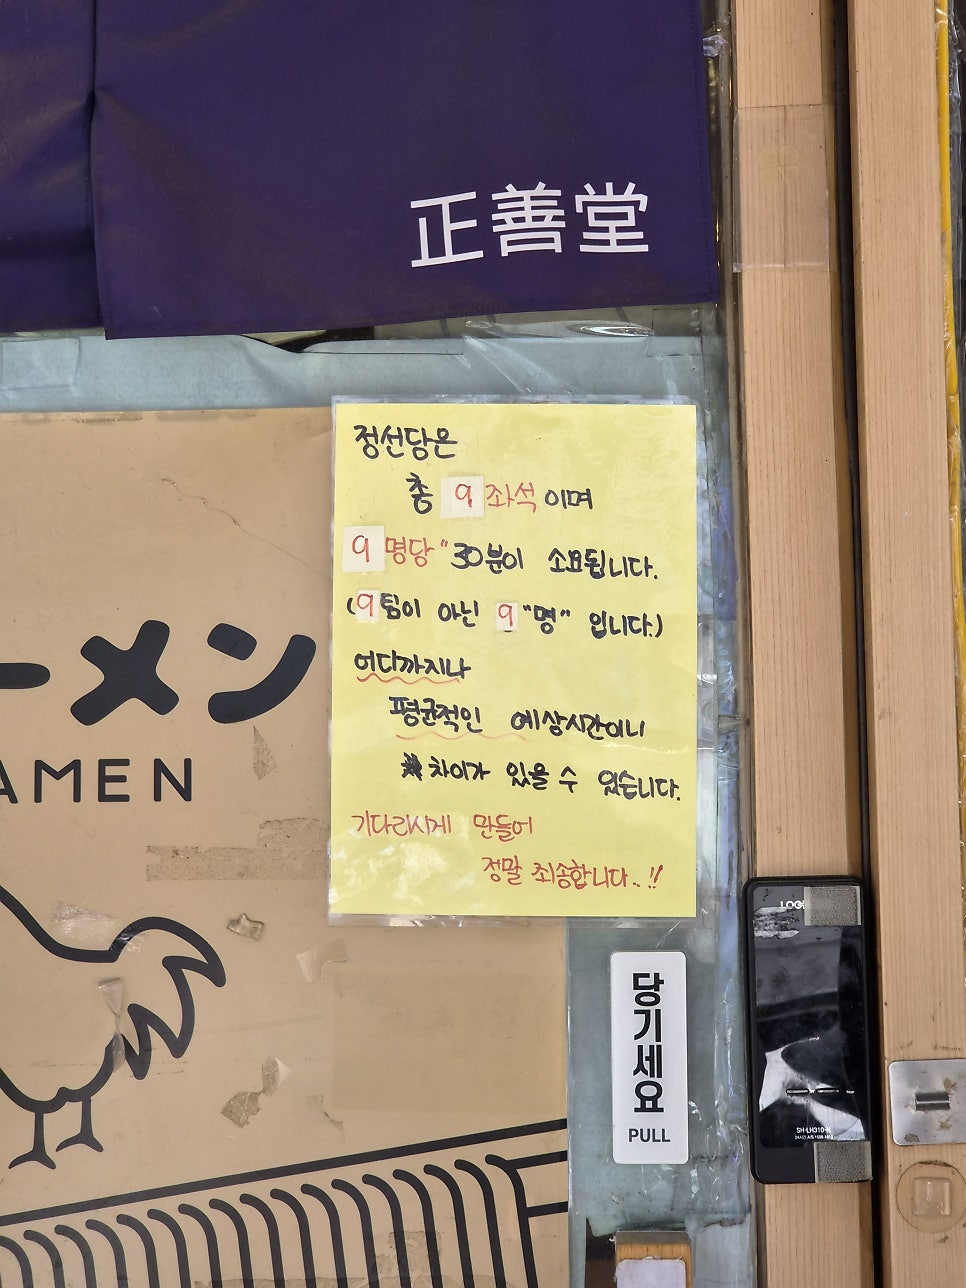 正善堂
정선당은
총 9 좌석 이며
9 명당" 30분이 소요됩니다.
(9팀이 아닌 9 "명" 입니다.)
어디까지나
평균적인 예상시간이니
차이가 있을 수 있습니다.
기다리시게 만들어
정말 죄송합니다..!!
ーメン
AMEN
당기세요
PULL
SH-LH310-N